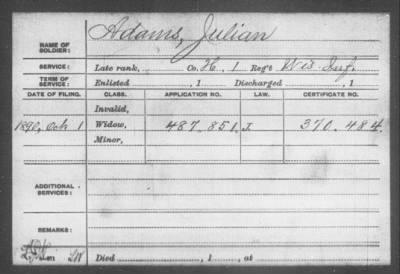 NAME OF SOLDIER: Adams, Julian
SERVICE: Late rank, Co. H, 1 Reg't Wis. Inf.
TERM OF SERVICE: Enlisted , 1 Discharged , 1
DATE OF FILING. CLASS. APPLICATION NO. LAW. CERTIFICATE NO.
Invalid,
1890, Oct 1 Widow, 487.851 J. 370.484.
Minor,
ADDITIONAL SERVICES:
REMARKS:
Died , 1 , at